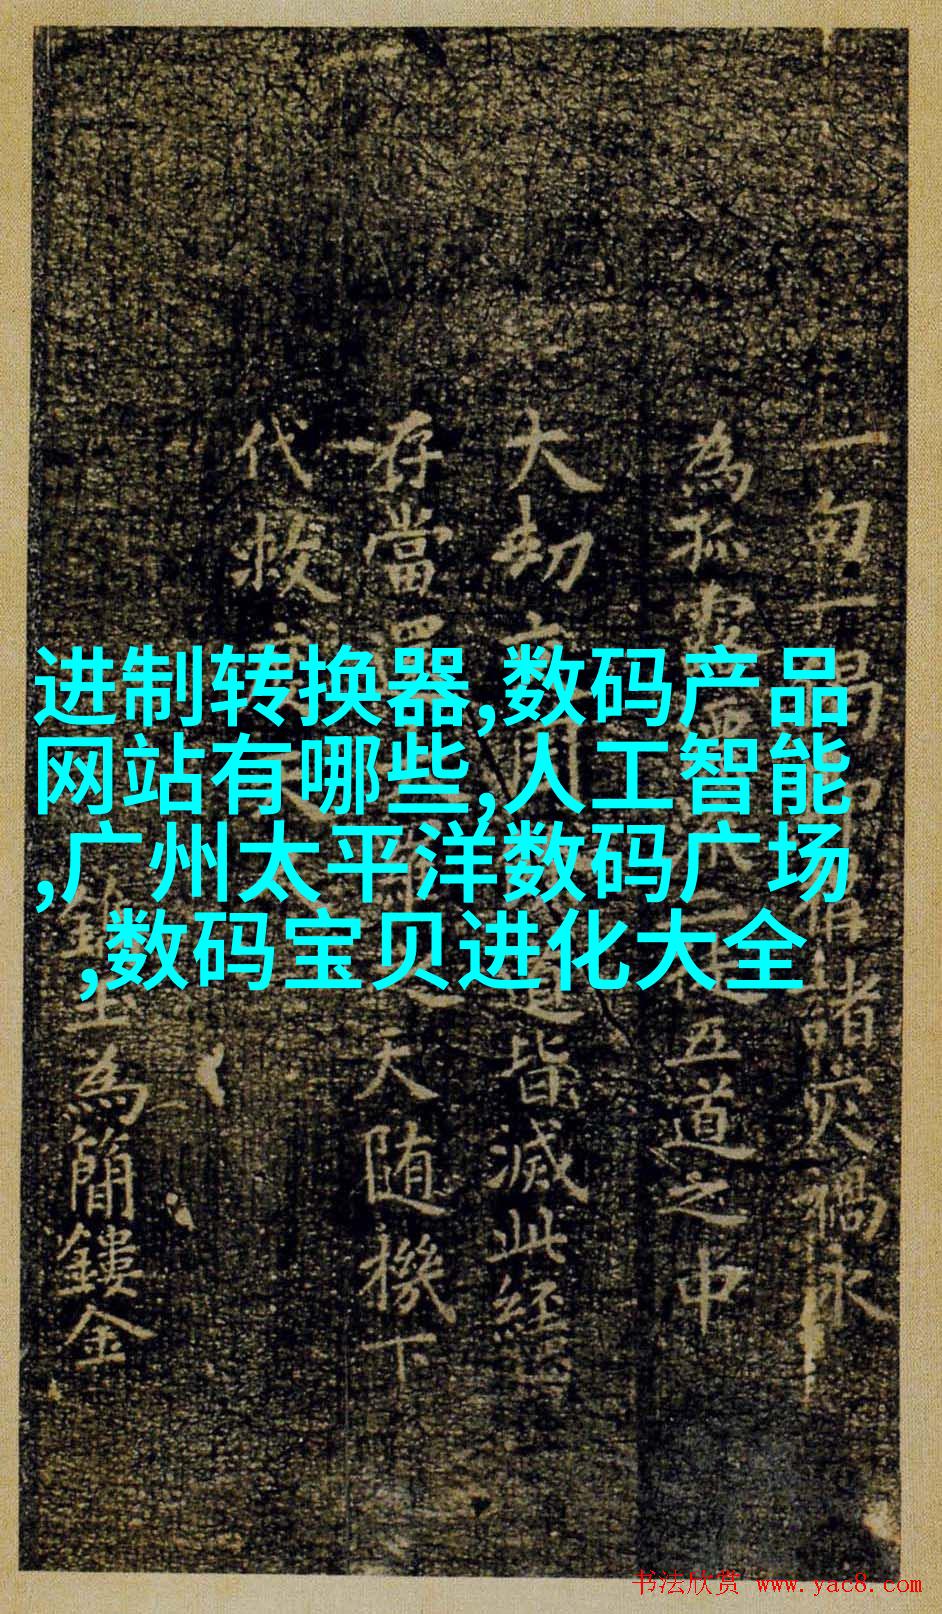 进制转换器,数码产品
网站有哪些,人工智能
,广州太平洋数码广场
,数码宝贝进化大全
一句一偈
諸灾禍永
為孤
五道之中
大劫
皆滅此經
存當
天随機下
代救
為簡鏤金
书法欣赏 www.yac8.com